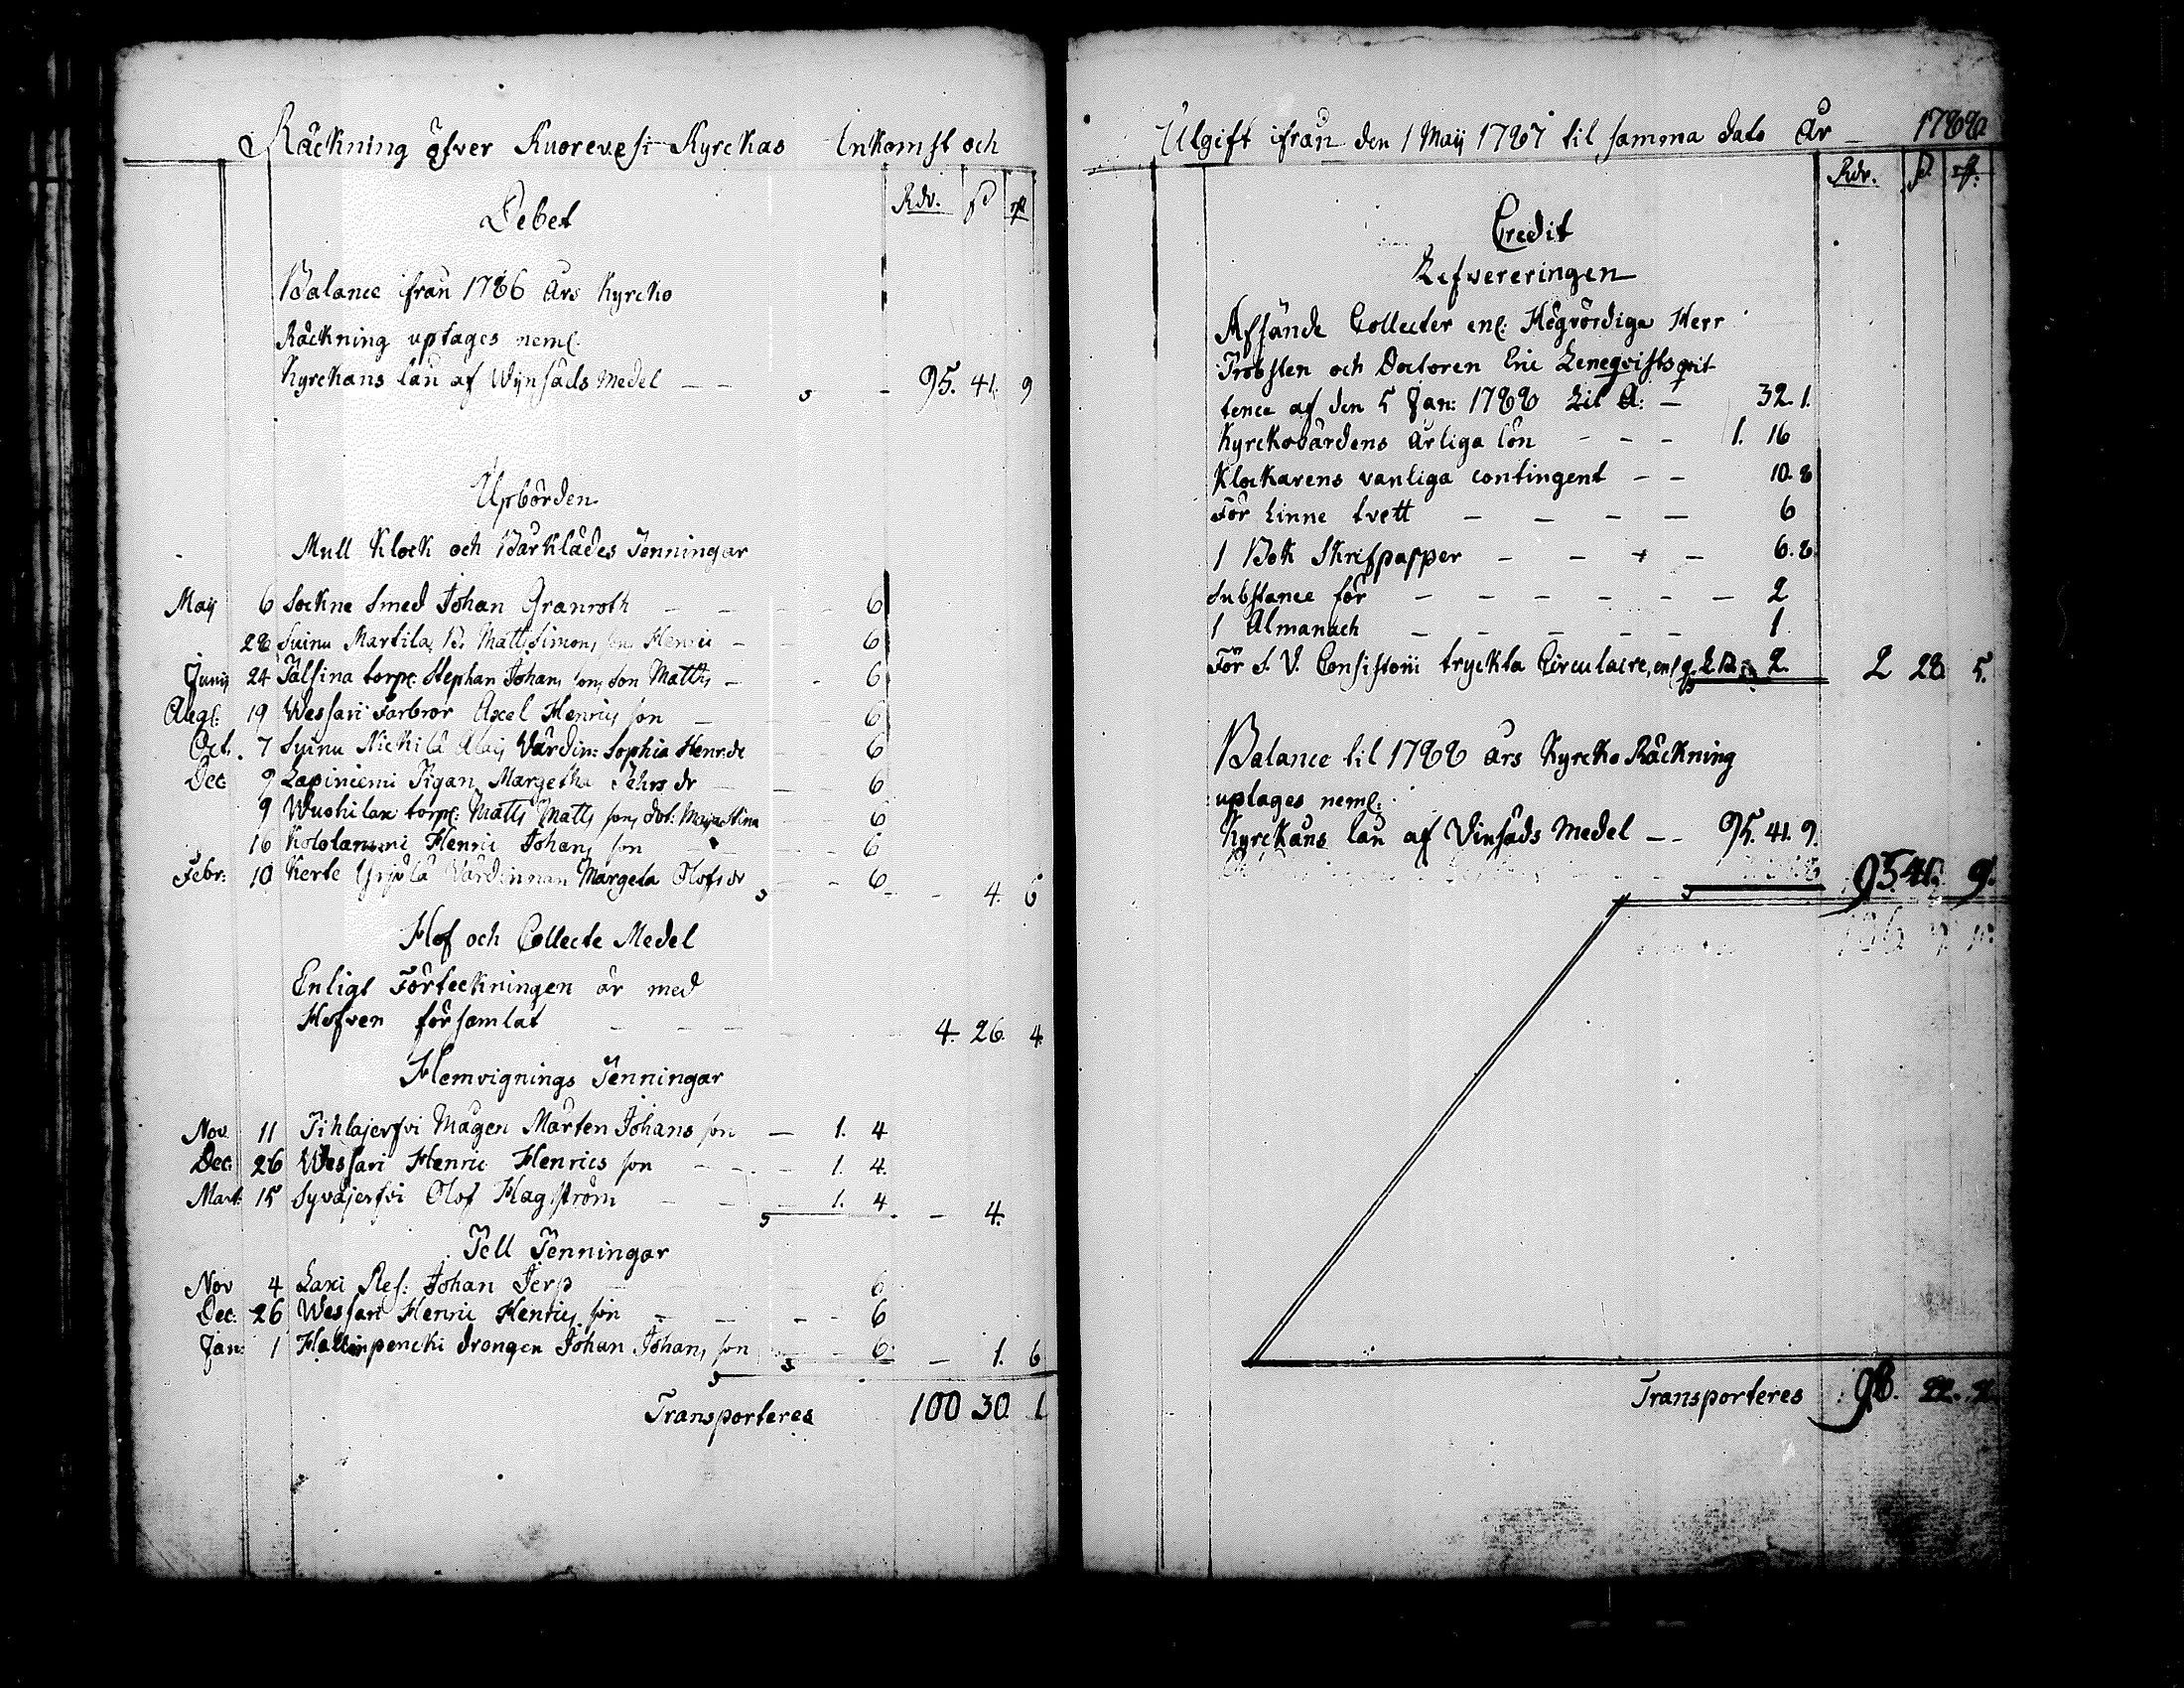 Räckning öfver Kuorevesi Kyrckas Inkomst och
Rdr. ß rst
Debet
Balance ifrån 1786 Års Kyrcko
Räckning uptages neml:
Kyrckans lån af Wynsäds Medel — — 95. 41. 9
Upbörden
Mull Klock och Bårklädes Penningar
Maij 6 Sockne Smed Johan Granroth — — 6
28 Suinu Martila B. Matts Simons son Henric — 6
Junij 24 Talsina torp: Stephan Johans sons son Matths — 6
Aug: 19 Wessari Farbror Axel Henrics son — 6
Oct. 7 Suinu Nickilä Värdin: Sophia Henr:dr 6
Dec 9 Lapiniemi Pigan Margetha Pehrs dr — 6
9 torp: Matts Matts sons dot: Maja Stina 6
16 Henric Johans son — 6
Febr: 10 Kerte Yrjölä Värdinnan Margeta Olofs dr — 6 — 4. 6
Hof och Collecte Medel
Enligt Förteckningen är med
Hofven församlat — — — 4. 26. 4.
Hemvignings Penningar
Nov 11 Pihlajerfvi Mågen Mårten Johans son — 1. 4
Dec: 26 Wessari Henric Henrics son — — 1. 4.
Mart: 15 Syväjerfvi Olof Hagström — — 1. 4 — 4.
Pell Penningar
Nov 4 Laxi Ref: Johan Jerp 6
Dec: 26 Wessari Henric Henrics son — — 6
Jan: 1 drongen Johan Johans son — 6 — 1. 6
Transporteres 100 30. 1
Utgift ifrån den 1 Maij 1787 til samma dato År 1788
Rdr. ß. rst:
Credit
Lefvereringen
Afsände Collecter enl: Högvördige Herr
Probsten och Doctoren Eric Leneqvists qvit-
tence af den 5 Jan: 1788 Lit A: — 32. 1.
Kyrckovärdens årliga lön — — — 1. 16
Klockarens vanliga contingent — — 10. 8
För Linne tvett — — — — 6
1 Bok Skrifpapper — — — 6. 8.
Substance för — — — — — — 2
1 Almanach — — — — — 1
För S. V. Consistorii tryckta Circulaire, enl q. L. B. 2. 2 28 5.
Balance til 1788 års Kyrcko Räckning
uptages neml:
Kyrckans lån af Vinsäds Medel — — 95. 41. 9.
95 41. 9.
Transporteres 98. 22. 2